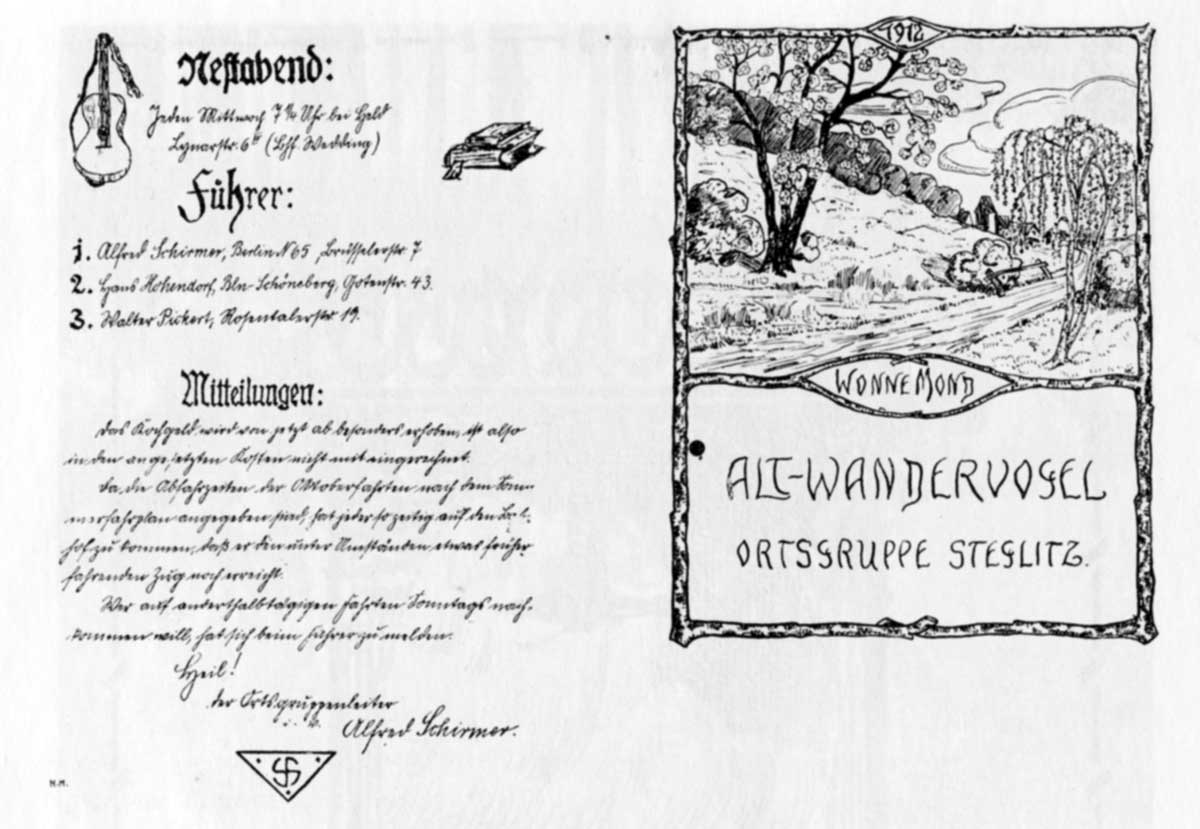 Nestabend:
Jeden Mittwoch 7 1/4 Uhr bei Held
Lynarstr. 6 (Bhf. Wedding)
Führer:
1. Alfred Schirmer, Berlin N 65, Brüsselerstr. 7
2. Hans Kohendorf, Bln-Schöneberg, Gotenstr. 43.
3. Walter Pickert, Rosentalerstr 19.
Mitteilungen:
Das Kochgeld wird von jetzt ab besonders erhoben, ist also
in den angesetzten Kosten nicht mit eingerechnet.
Da die Abfahrzeiten der Oktoberfahrten nach dem Som-
merfahrplan angegeben sind, hat jeder so zeitig auf den Bahn-
hof zu kommen, daß er den unter Umständen etwas früher
fahrenden Zug noch erreicht.
Wer auf anderthalbtägigen Fahrten Sonntags nach-
kommen will, hat sich beim Führer zu melden.
Heil!
der Ortsgruppenleiter
Alfred Schirmer.
H.M.
1912
WONNEMOND
ALT-WANDERVOGEL
ORTSGRUPPE STEGLITZ.